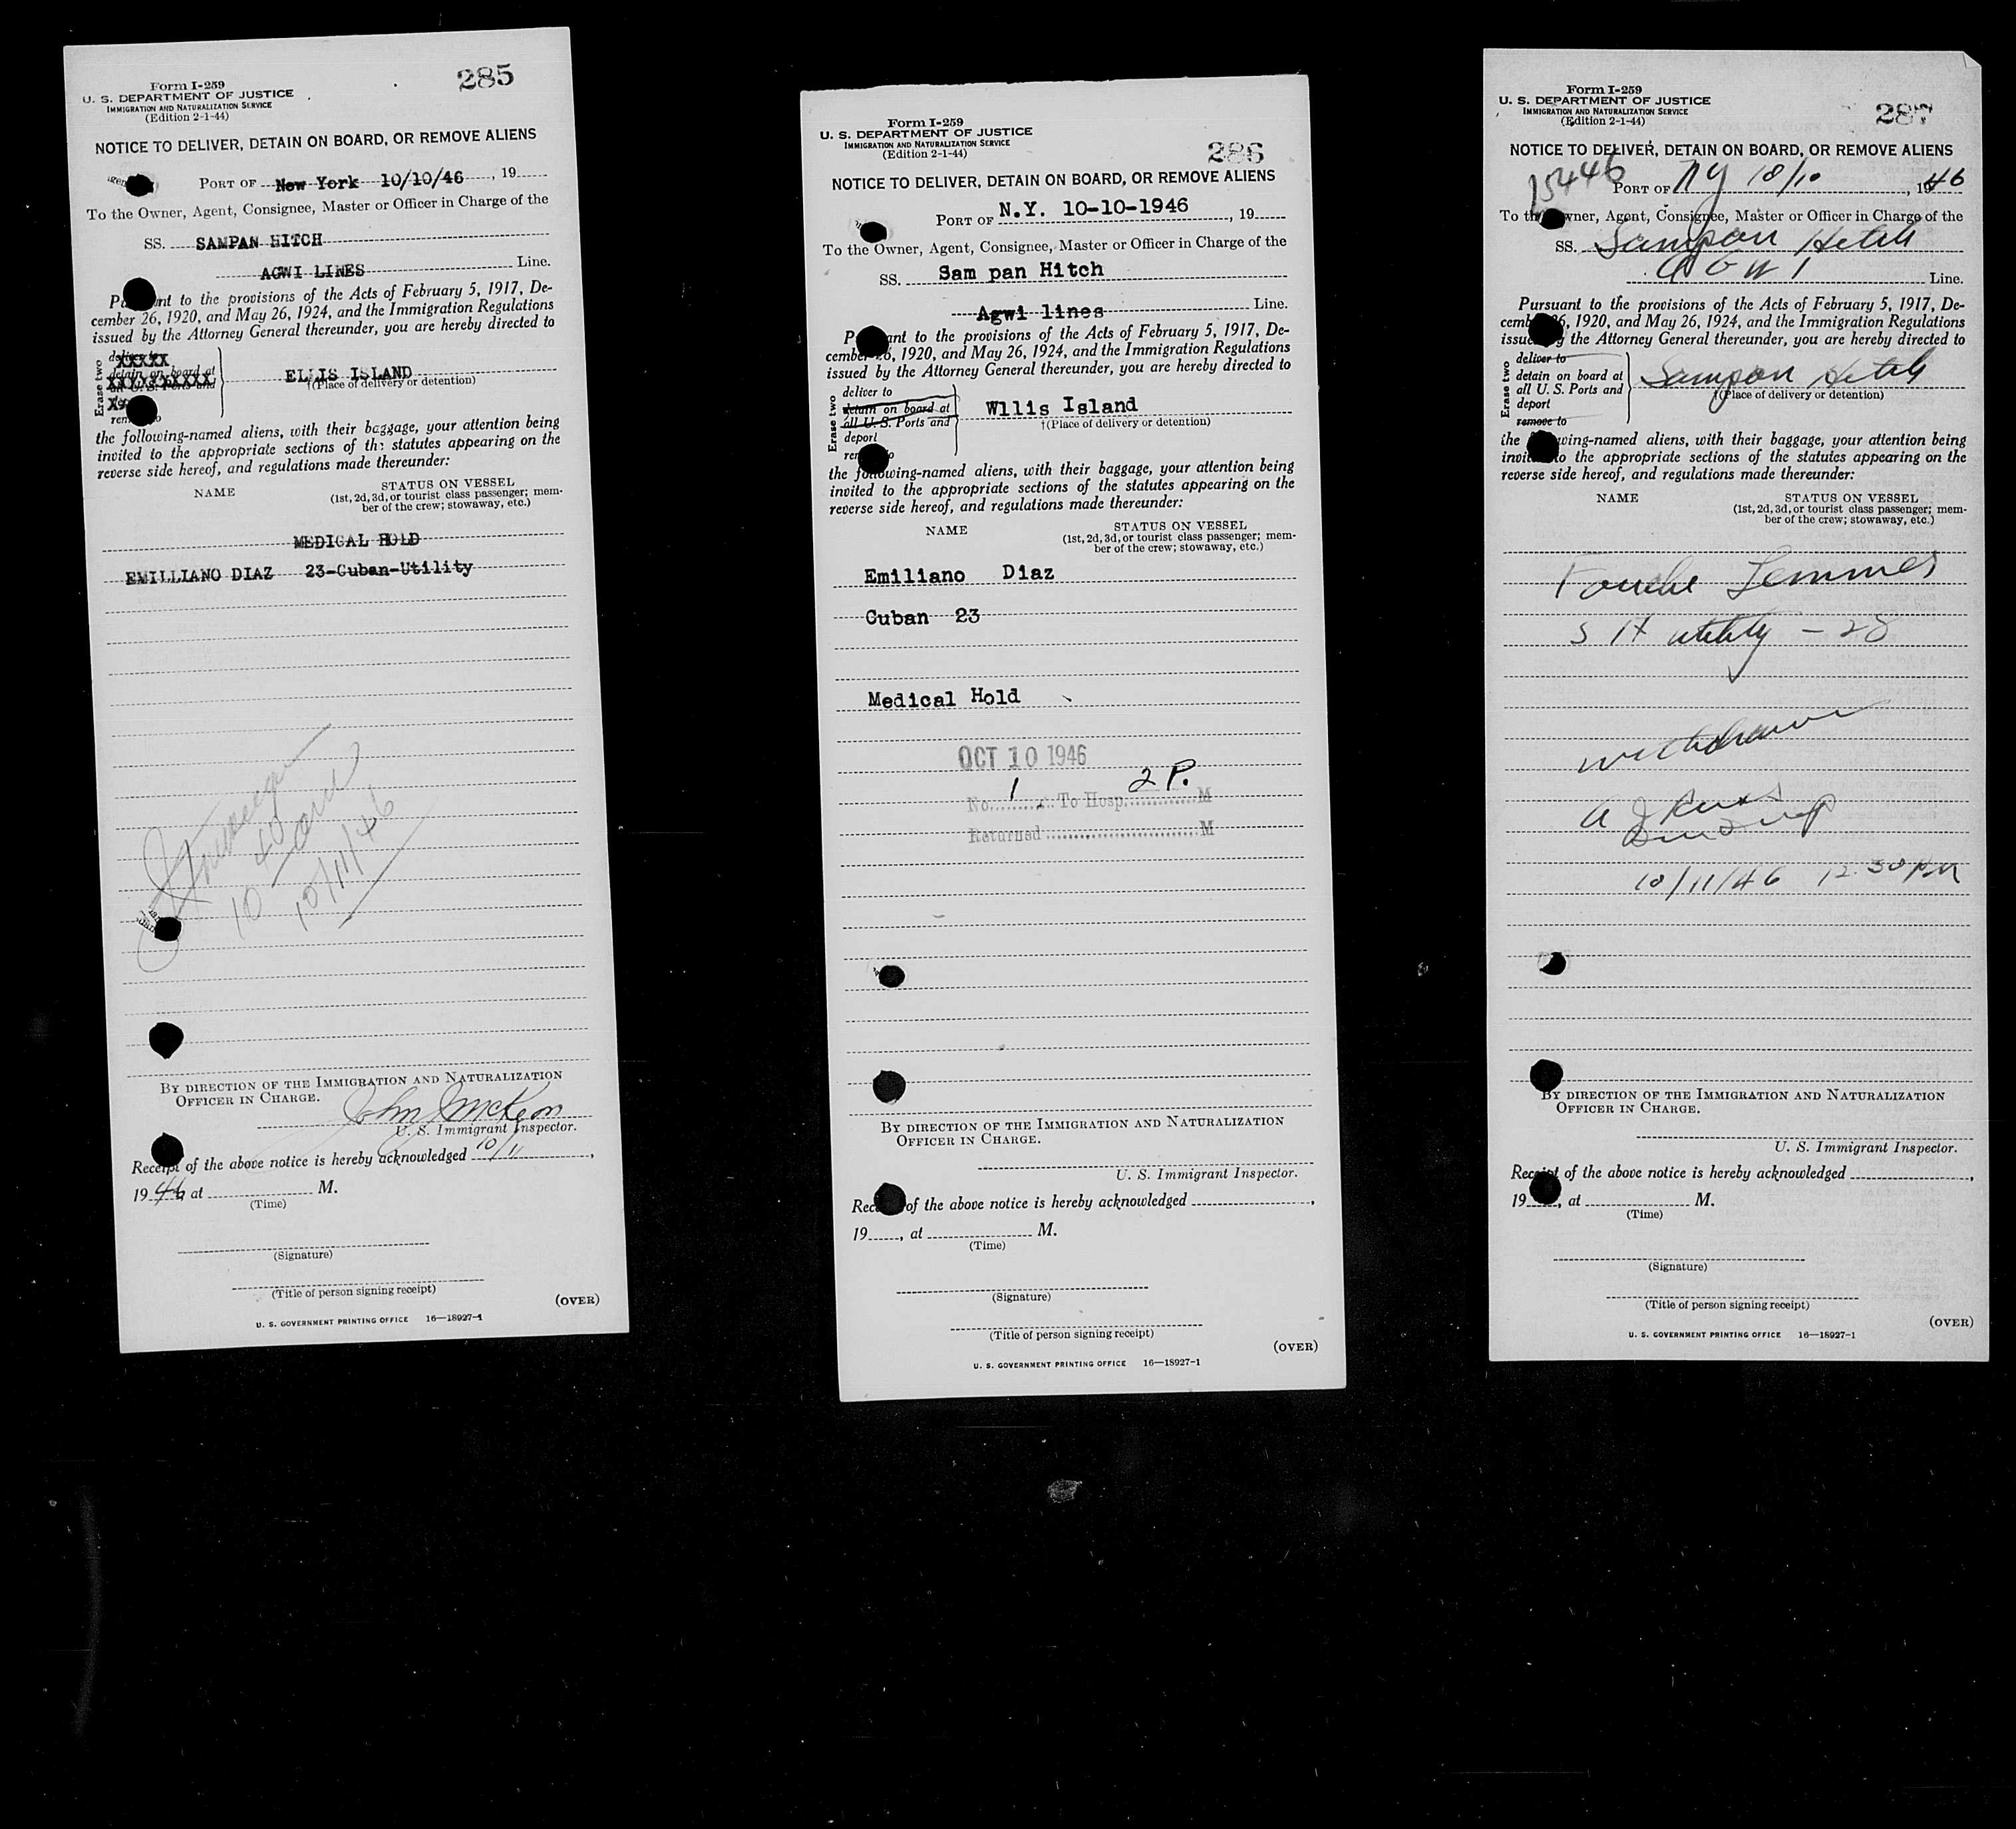 285
Form I-259
U. S. DEPARTMENT OF JUSTICE
IMMIGRATION AND NATURALIZATION SERVICE
(Edition 2-1-44)
NOTICE TO DELIVER, DETAIN ON BOARD, OR REMOVE ALIENS
PORT OF New York 10/10/46, 19
To the Owner, Agent, Consignee, Master or Officer in Charge of the
SS. SAMPAN HITCH
AGWI LINES Line.
Pu ant to the provisions of the Acts of February 5, 1917, De-
cember 26, 1920, and May 26, 1924, and the Immigration Regulations
issued by the Attorney General thereunder, you are hereby directed to
Erase two
deliver to XXXXX
detain on board at
XXXXXXXXXX
all U. S. Ports and
ELLIS ISLAND
†(Place of delivery or detention)
the following-named aliens, with their baggage, your attention being
invited to the appropriate sections of the statutes appearing on the
reverse side hereof, and regulations made thereunder:
NAME STATUS ON VESSEL
(1st, 2d, 3d, or tourist class passenger; mem-
ber of the crew; stowaway, etc.)
MEDICAL HOLD
EMILLIANO DIAZ 23-Cuban-Utility
10 40
10/11/46
BY DIRECTION OF THE IMMIGRATION AND NATURALIZATION
OFFICER IN CHARGE.
John J McKeon
U. S. Immigrant Inspector.
Receipt of the above notice is hereby acknowledged 10/11,
1946 at M.
(Time)
(Signature)
(Title of person signing receipt)
(OVER)
U. S. GOVERNMENT PRINTING OFFICE 16—18927-1
286
Form I-259
U. S. DEPARTMENT OF JUSTICE
IMMIGRATION AND NATURALIZATION SERVICE
(Edition 2-1-44)
NOTICE TO DELIVER, DETAIN ON BOARD, OR REMOVE ALIENS
PORT OF N.Y. 10-10-1946, 19
To the Owner, Agent, Consignee, Master or Officer in Charge of the
SS. Sam pan Hitch
Agwi lines Line.
P ant to the provisions of the Acts of February 5, 1917, De-
cember 26, 1920, and May 26, 1924, and the Immigration Regulations
issued by the Attorney General thereunder, you are hereby directed to
Erase two
deliver to
detain on board at
all U. S. Ports and
deport
Wllis Island
†(Place of delivery or detention)
the following-named aliens, with their baggage, your attention being
invited to the appropriate sections of the statutes appearing on the
reverse side hereof, and regulations made thereunder:
NAME STATUS ON VESSEL
(1st, 2d, 3d, or tourist class passenger; mem-
ber of the crew; stowaway, etc.)
Emiliano Diaz
Cuban 23
Medical Hold
OCT 10 1946
No. 1 To Hosp. 2 P. M
Returned M
BY DIRECTION OF THE IMMIGRATION AND NATURALIZATION
OFFICER IN CHARGE.
U. S. Immigrant Inspector.
Rec of the above notice is hereby acknowledged,
19, at M.
(Time)
(Signature)
(Title of person signing receipt)
(OVER)
U. S. GOVERNMENT PRINTING OFFICE 16—18927-1
287
Form I-259
U. S. DEPARTMENT OF JUSTICE
IMMIGRATION AND NATURALIZATION SERVICE
(Edition 2-1-44)
NOTICE TO DELIVER, DETAIN ON BOARD, OR REMOVE ALIENS
15446 PORT OF NY 10/10, 1946
To th wner, Agent, Consignee, Master or Officer in Charge of the
SS. Sampan Hitch
AGWI Line.
Pursuant to the provisions of the Acts of February 5, 1917, De-
cemb 26, 1920, and May 26, 1924, and the Immigration Regulations
issue y the Attorney General thereunder, you are hereby directed to
Erase two
deliver to
detain on board at
all U. S. Ports and
deport
remove to
Sampan Hitch
†(Place of delivery or detention)
the wing-named aliens, with their baggage, your attention being
invit to the appropriate sections of the statutes appearing on the
reverse side hereof, and regulations made thereunder:
NAME STATUS ON VESSEL
(1st, 2d, 3d, or tourist class passenger; mem-
ber of the crew; stowaway, etc.)
utility - 28
withdrawn
10/11/46 12 30 PM
BY DIRECTION OF THE IMMIGRATION AND NATURALIZATION
OFFICER IN CHARGE.
U. S. Immigrant Inspector.
Receipt of the above notice is hereby acknowledged,
19, at M.
(Time)
(Signature)
(Title of person signing receipt)
(OVER)
U. S. GOVERNMENT PRINTING OFFICE 16—18927-1